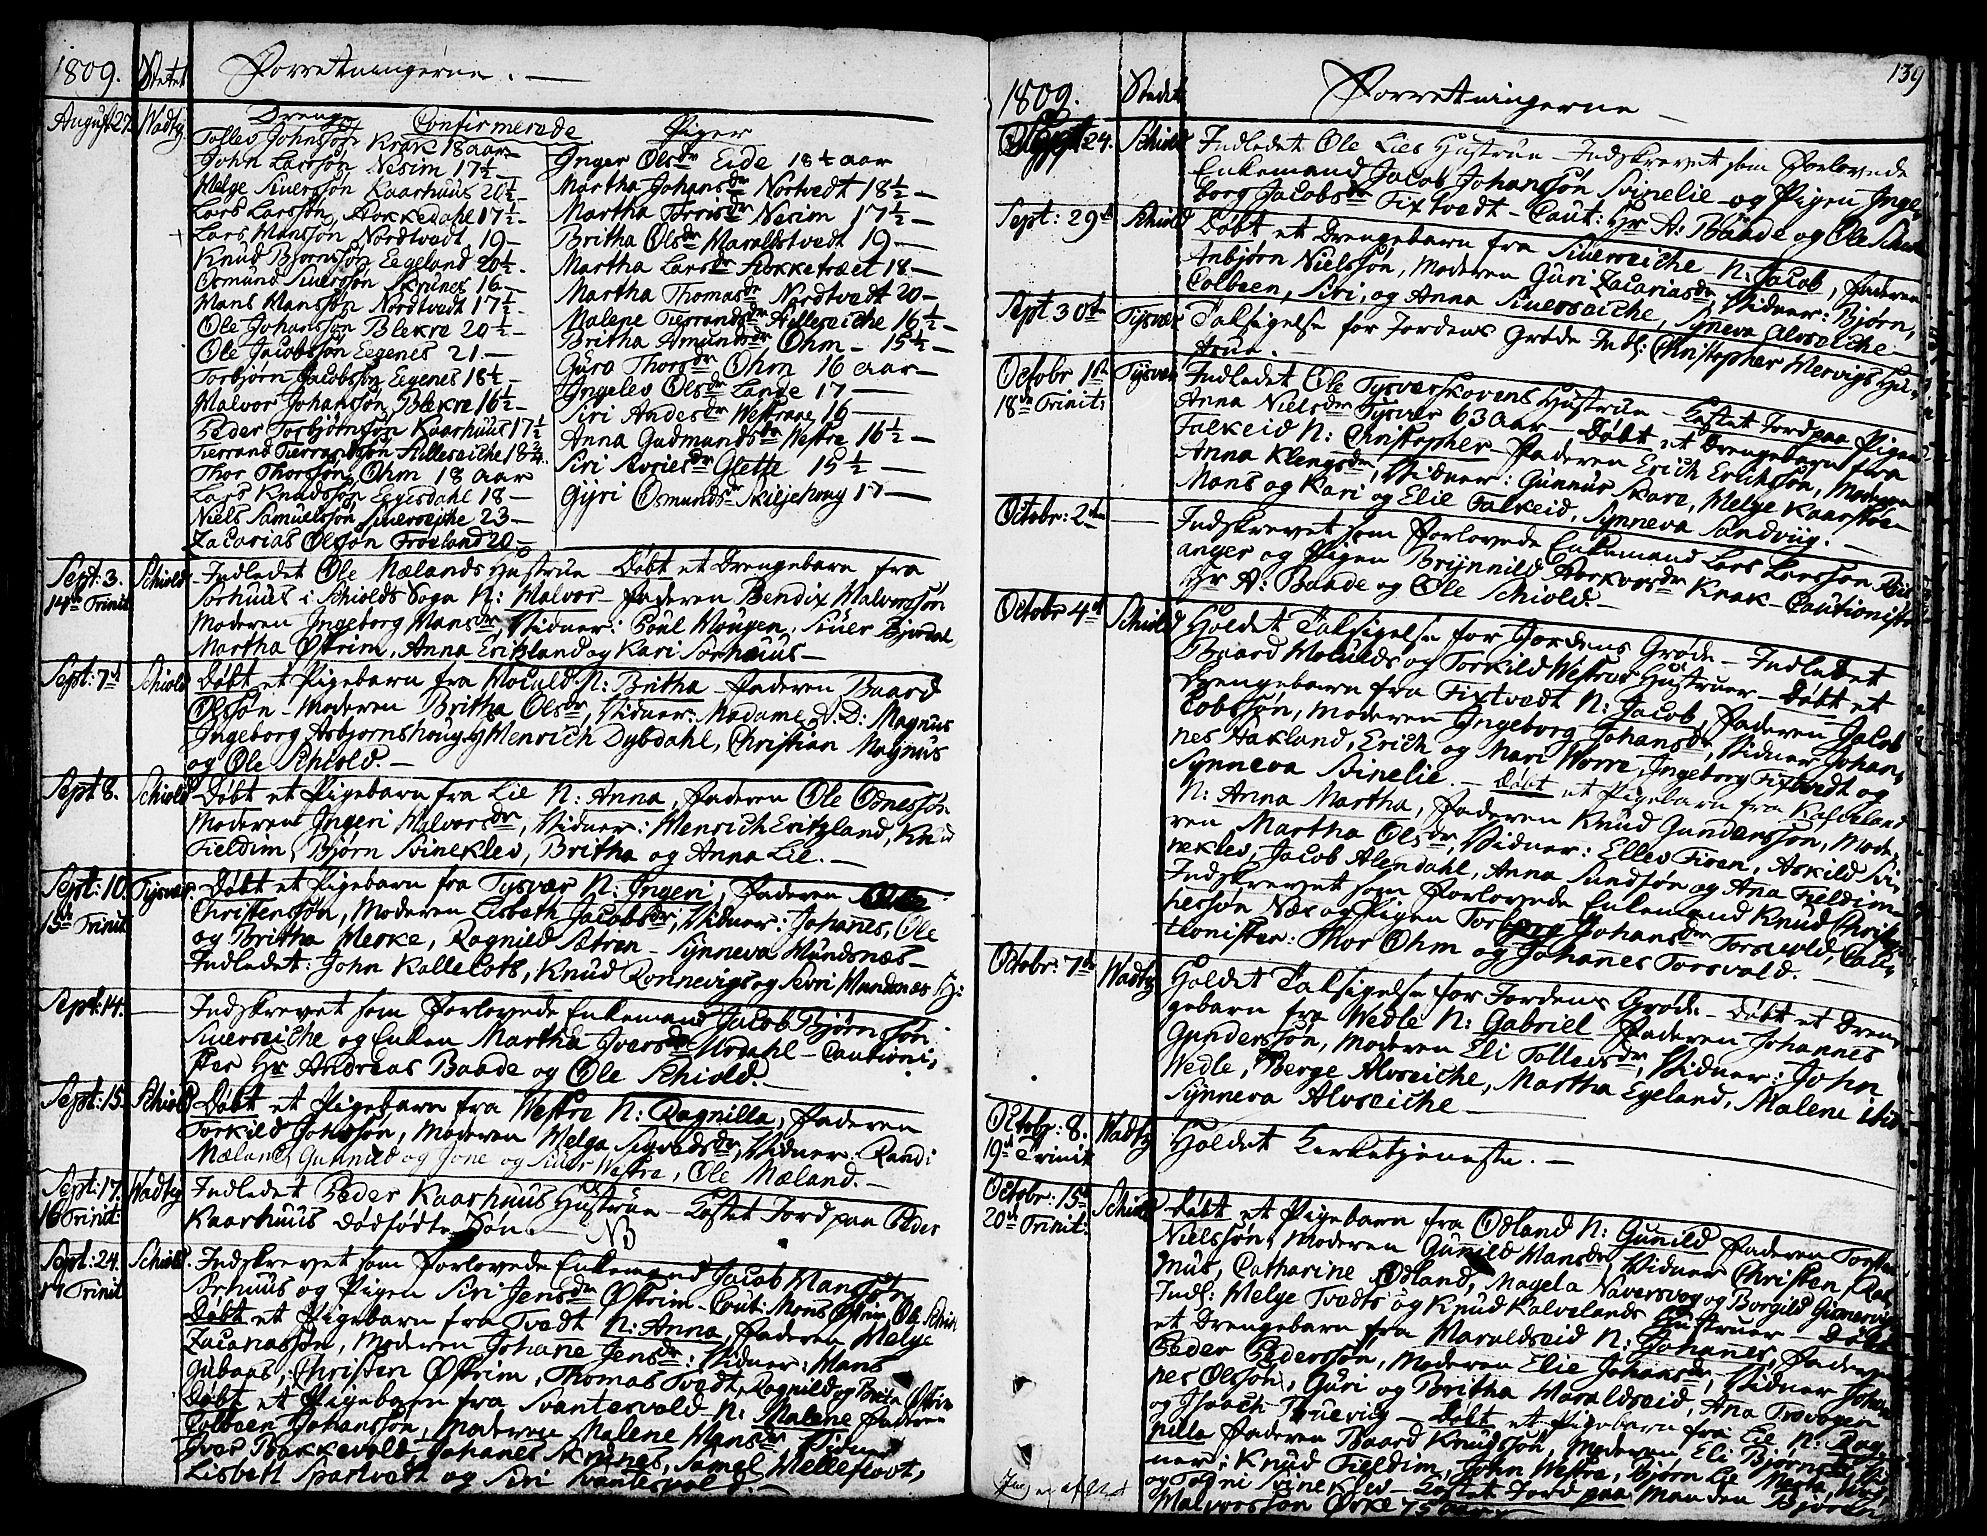 1809. Stetet Forretningerne. —
August 27 Wadby Drenge Confirmerede Piger
Tollev Johnssøn Krak 18 aar —
John Larssøn Nesim 17½ —
Helge Siverssøn Kaarhuus 20½
Lars Larssøn Aakkedahl 17½ —
Lars Hanssøn Nordtvedt 19 —
Knud Bjørnssøn Eegeland 20½.
Osmund Siverssøn Skrunes 16 —
Hans Hanssøn Nordtvedt 17½ —
Ole Johanssøn Blekre 20½ —
Ole Jacobssøn Eegenes 21 —
Torbjørn Jacobssøn Eegenes 18½ —
Halvor Johanssøn Blekre 16½ —
Peder Torbjørnssøn Kaarhuus 17½
Tierrand Tierrandssøn Hillesviche 18¾.
Thor Thorssøn Ohm 18 aar
Lars Knudssøn Eggesdahl 18 —
Niels Samuelssøn Siversviche 23 —
Zacarias Olssøn Frøeland 20 —
Inger Olsdr Eide 18½ aar
Martha Johansdr Nortvedt 18½ —
Martha Torrisdr Nesim 17½ —
Britha Olsdr Haraldstvedt 19 —
Martha Larsdr Stokketræet 18 —
Martha Thomasdr Nordtvedt 20 —
Malene Tierrandsdr Hillesviche 16½ —
Britha Amundsdr Ohm — 15½ —
Guro Thorsdr Ohm 16 aar —
Ingelev Olsdr Lande 17 —
Siri Andersdr Westraae 16 —
Anna Gudmundsdr Westre 16½ —
Siri Avriesdr Glette 15½ —
Gyri Osmundsdr Skiljehoug 17 —
Sept: 3. 14de Trinit Schiold Indledet Ole Mælands Hustrue — Døbt et Drengebarn fra
Sørhuus i Schiolds Sogn N: Halvor — Faderen Bendix Halvorssøn
Moderen Ingeborg Hansdr Vidner: Poul Hougen, Siver Bjordal
Martha Østrim, Anna Eritzland og Kari Sørhuus —
Sept: 7de Schiold Døbt et Pigebarn fra Hovald N: Britha — Faderen Baard
Olssøn — Moderen Britha Olsdr, Vidner: Madame S. D: Magnus
Ingeborg Asbjørnshoug, Henrich Dybdahl, Christian Magnus
og Ole Schiold. —
Sept 8. Schiold Døbt et Pigebarn fra Lie N: Anna, Faderen Ole Odnessøn
Moderen Ingeri Halvorsdr, Vidner: Henrich Eritzland, Knud
Fieldim, Bjørn Svineklev, Britha og Anna Lie. —
Sept: 10. 15de Trinit Tysvær. Døbt et Pigebarn fra Tysvær N: Ingeri, Faderen
Christenssøn, Moderen Lisbeth Jacobsdr, Vidner: Johanes, Ole
og Britha Heske, Ragnild Sætren — Synneva Hundsnæs —
Indledet: John Kallelots, Knud Rønnevigs og Siri Hundnæs H:
Sept: 14. — Indskrevet som Forlovede Enkemand Jacob Bjørnssøn
Siversviche og Enken Martha Iversdr Urdahl — Cautioni-
ster Hr Andreas Baade og Ole Schiold. —
Sept: 15. Schiold Døbt et Pigebarn fra Westre N: Ragnilla, Faderen
Torkild Johnssøn, Moderen Helga Sigvadsdr, Vidner: Randi
Mæland, Gunnild og Jone og Siver Westre, Ole Mæland. —
Sept: 17. 16 Trinit: Wadby Indledet Peder Kaarhuus Hustrue — Kastet Jord paa Peder
Kaarhuus dødfødte Søn. — NB
Sept: 24. 17 Trinit Schiold. Indskrevet som Forlovede Enkemand Jacob Hanssøn
Sørhuus og Pigen Siri Jensdr Østrim — Caut: Mons Østrim, Ole Schiold
Døbt et Pigebarn fra Tvedt N: Anna, Faderen Helge
Zacariassøn, Moderen Johane Jensdr: Vidner: Hans
Gubaas, Christen Østrim, Thomas Tvedt, Ragnild og Brita Østrim
Døbt et Pigebarn fra Svantesvold — N: Malene Faderen
Colbeen Johanssøn, Moderen Malene Hansdr Vidner
Iver Bakkevold, Johanes Skrunes, Samel Helleflovt,
Lisbeth Sportvedt og Siri Svantesvold. —
139
1809. Stedet Forretningerne —
Sept 24. Schiold Indledet Ole Lies Hustrue — Indskrevet som Forlovede
Enkemand Jacob Johanssøn Svinelie — og Pigen Inge-
borg Jacobsdr Fixtvedt — Caut: Hr A: Baade og Ole Schiold
Sept: 29de Schiold Døbt et Drengebarn fra Siversviche N: Jacob, Faderen
Anbjørn Nielssøn, Moderen Guri Zacariasdr, Vidner: Bjørn,
Colbeen, Siri, og Anna Siversviche, Syneva Alvsviche —
Sept 30te Tysvær Taksigelse for Jordens Grøde Indl: Christopher Hervigs Hu-
strue. —
Octobr 1te 18de Trinit: Tysvær Indledet Ole Tysværskovens Hustrue — Kastet Jord paa Pigen
Anna Nielsdr Tysvær 63 Aar — Døbt et Drengebarn fra
Falkeid N: Christopher — Faderen Erich Erichssøn, Moderen
Anna Klengsdr, Vidner: Gunnur Skare, Helge Kaarstøe
Hans og Kari og Elie Falkeid, Synneva Sandviig. —
Octobr: 2den — Indskrevet som Forlovede Enkemand Lars Larssøn
anger og Pigen Brynnild Aorkvorsdr Krak — Cautionister
Hr A: Baade og Ole Schiold. —
Octobr 4de Schiold Holdet Taksigelse for Jordens Grøde — Indledet
Baard Hovalds og Torkild Westres Hustruer — Døbt et
Drengebarn fra Fixtvedt N: Jacob, Faderen Jacob
Cobssøn, Moderen Ingeborg Johansdr, Vidner Johan-
nes Aakland, Erich og Mari Worre, Ingeborg Fixtvedt og
Synneva Svinelie. — Døbt et Pigebarn fra Kalveland
N: Anna Martha, Faderen Knud Gunderssøn, Mode-
ren Martha Olsdr, Vidner: Ellev Tveen, Askild Svi-
neklev, Jacob Alendahl, Anna Sundsøn og Ana Fieldim —
Indskrevet som Forlovede Enkemand Knud Christop-
herssøn Næs og Pigen Torborg Johansdr Torsvold, Cau-
tionister: Thor Ohm og Johanes Torsvald.
Octobr: 7de Wadby Holdet Taksigelse for Jordens Grøde — Døbt et Dren-
gebarn fra Wedle N: Gabriel Faderen Johannes
Gunderssøn, Moderen Eli Tolleivsdr, Vidner: John
Wedle, Berge Alvsviche, Martha Egeland, Malene
Synneva Alvsviche —
Octobr: 8. 19de Trinit Wadby Holdet Kirketjeneste. —
Octobr: 15de 20de Trinit: Schiold Døbt et Pigebarn fra Odland N: Gunild Faderen Torsten
Nielssøn, Moderen Gunild Hansdr Vidner Christen, Ras-
mus, Catharine Odland, Magela Naversvog og Borgild
Indl: Helge Tvedts og Knud Kalvelands Hustruer — Døbt
et Drengebarn fra Haraldseid N: Johanes, Faderen
Peder Pederssøn, Moderen Elie Johansdr, Vidner Johan-
nes Olssøn, Guri og Britha Haraldseid, Ana Trovaagen
og Isaach Truevig — Døbt et Pigebarn fra Lie N: Rag-
nilla Faderen Baard Knudssøn, Moderen Eli Bjørnsdr, Vid-
ner: Knud Fieldim, John Westre, Bjørn Lie
og Togni Svineklev — Kastet Jord paa Manden Bjørn
Halvorssøn Ørke 75 aar